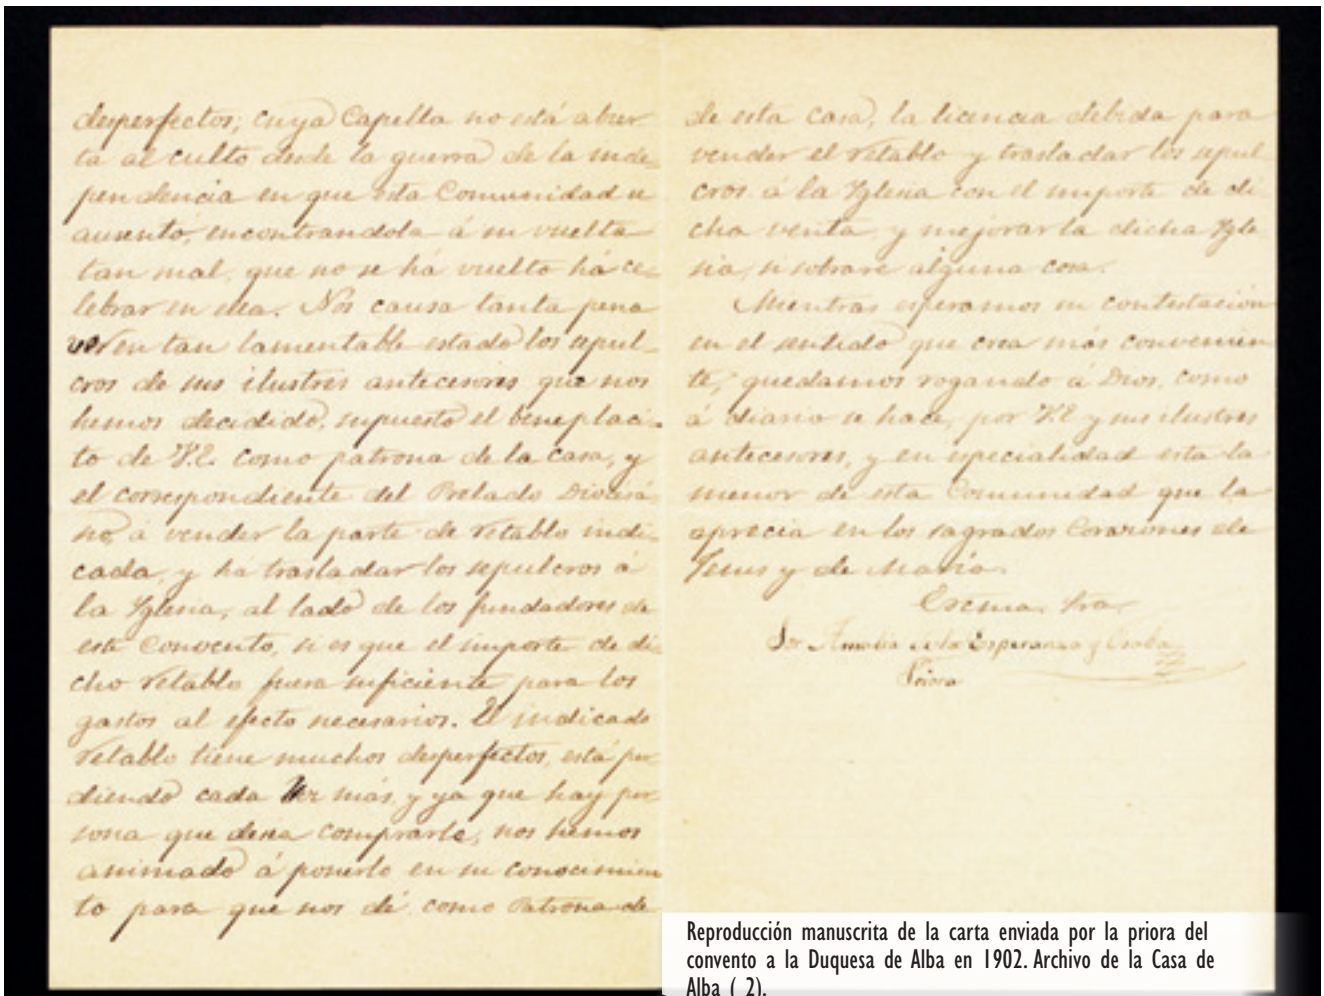 desperfectos; cuya Capilla no está abier-
ta al culto desde la guerra de la inde-
pendencia en que esta Comunidad se
ausentó, encontrandola á su vuelta
tan mal, que no se há vuelto há ce-
lebrar en ella. Nos causa tanta pena
ver en tan lamentable estado los sepul-
cros de sus ilustres antecesores que nos
hemos decidido, supuesto el beneplaci-
to de V.E. como patrona de la casa, y
el correspondiente del Prelado Diocesa-
no, á vender la parte de retablo indi-
cada, y há trasladar los sepulcros á
la Yglesia, al lado de los fundadores de
este Convento, si es que el importe de di-
cho retablo fuera suficiente para los
gastos al efecto necesarios. El indicado
retablo tiene muchos desperfectos, está per-
diendo cada vez más, y ya que hay per-
sona que desea comprarle, nos hemos
animado á ponerlo en su conocimien-
to para que nos dé como Patrona de
de esta casa, la licencia debida para
vender el retablo y trasladar los sepul-
cros á la Yglesia con el importe de di-
cha venta, y mejorar la dicha Ygle-
sia, si sobrare alguna cosa.
Mientras esperamos su contestación
en el sentido que crea más convenien-
te, quedamos rogando á Dios, como
á diario se hace, por V.E y sus ilustres
antecesores, y en especialidad esta la
menor de esta Comunidad que la
aprecia en los sagrados Corazones de
Jesus y de María.
Excma. Sra.
Sor Amalia de la Esperanza y
Priora
Reproducción manuscrita de la carta enviada por la priora del
convento a la Duquesa de Alba en 1902. Archivo de la Casa de
Alba ( 2).